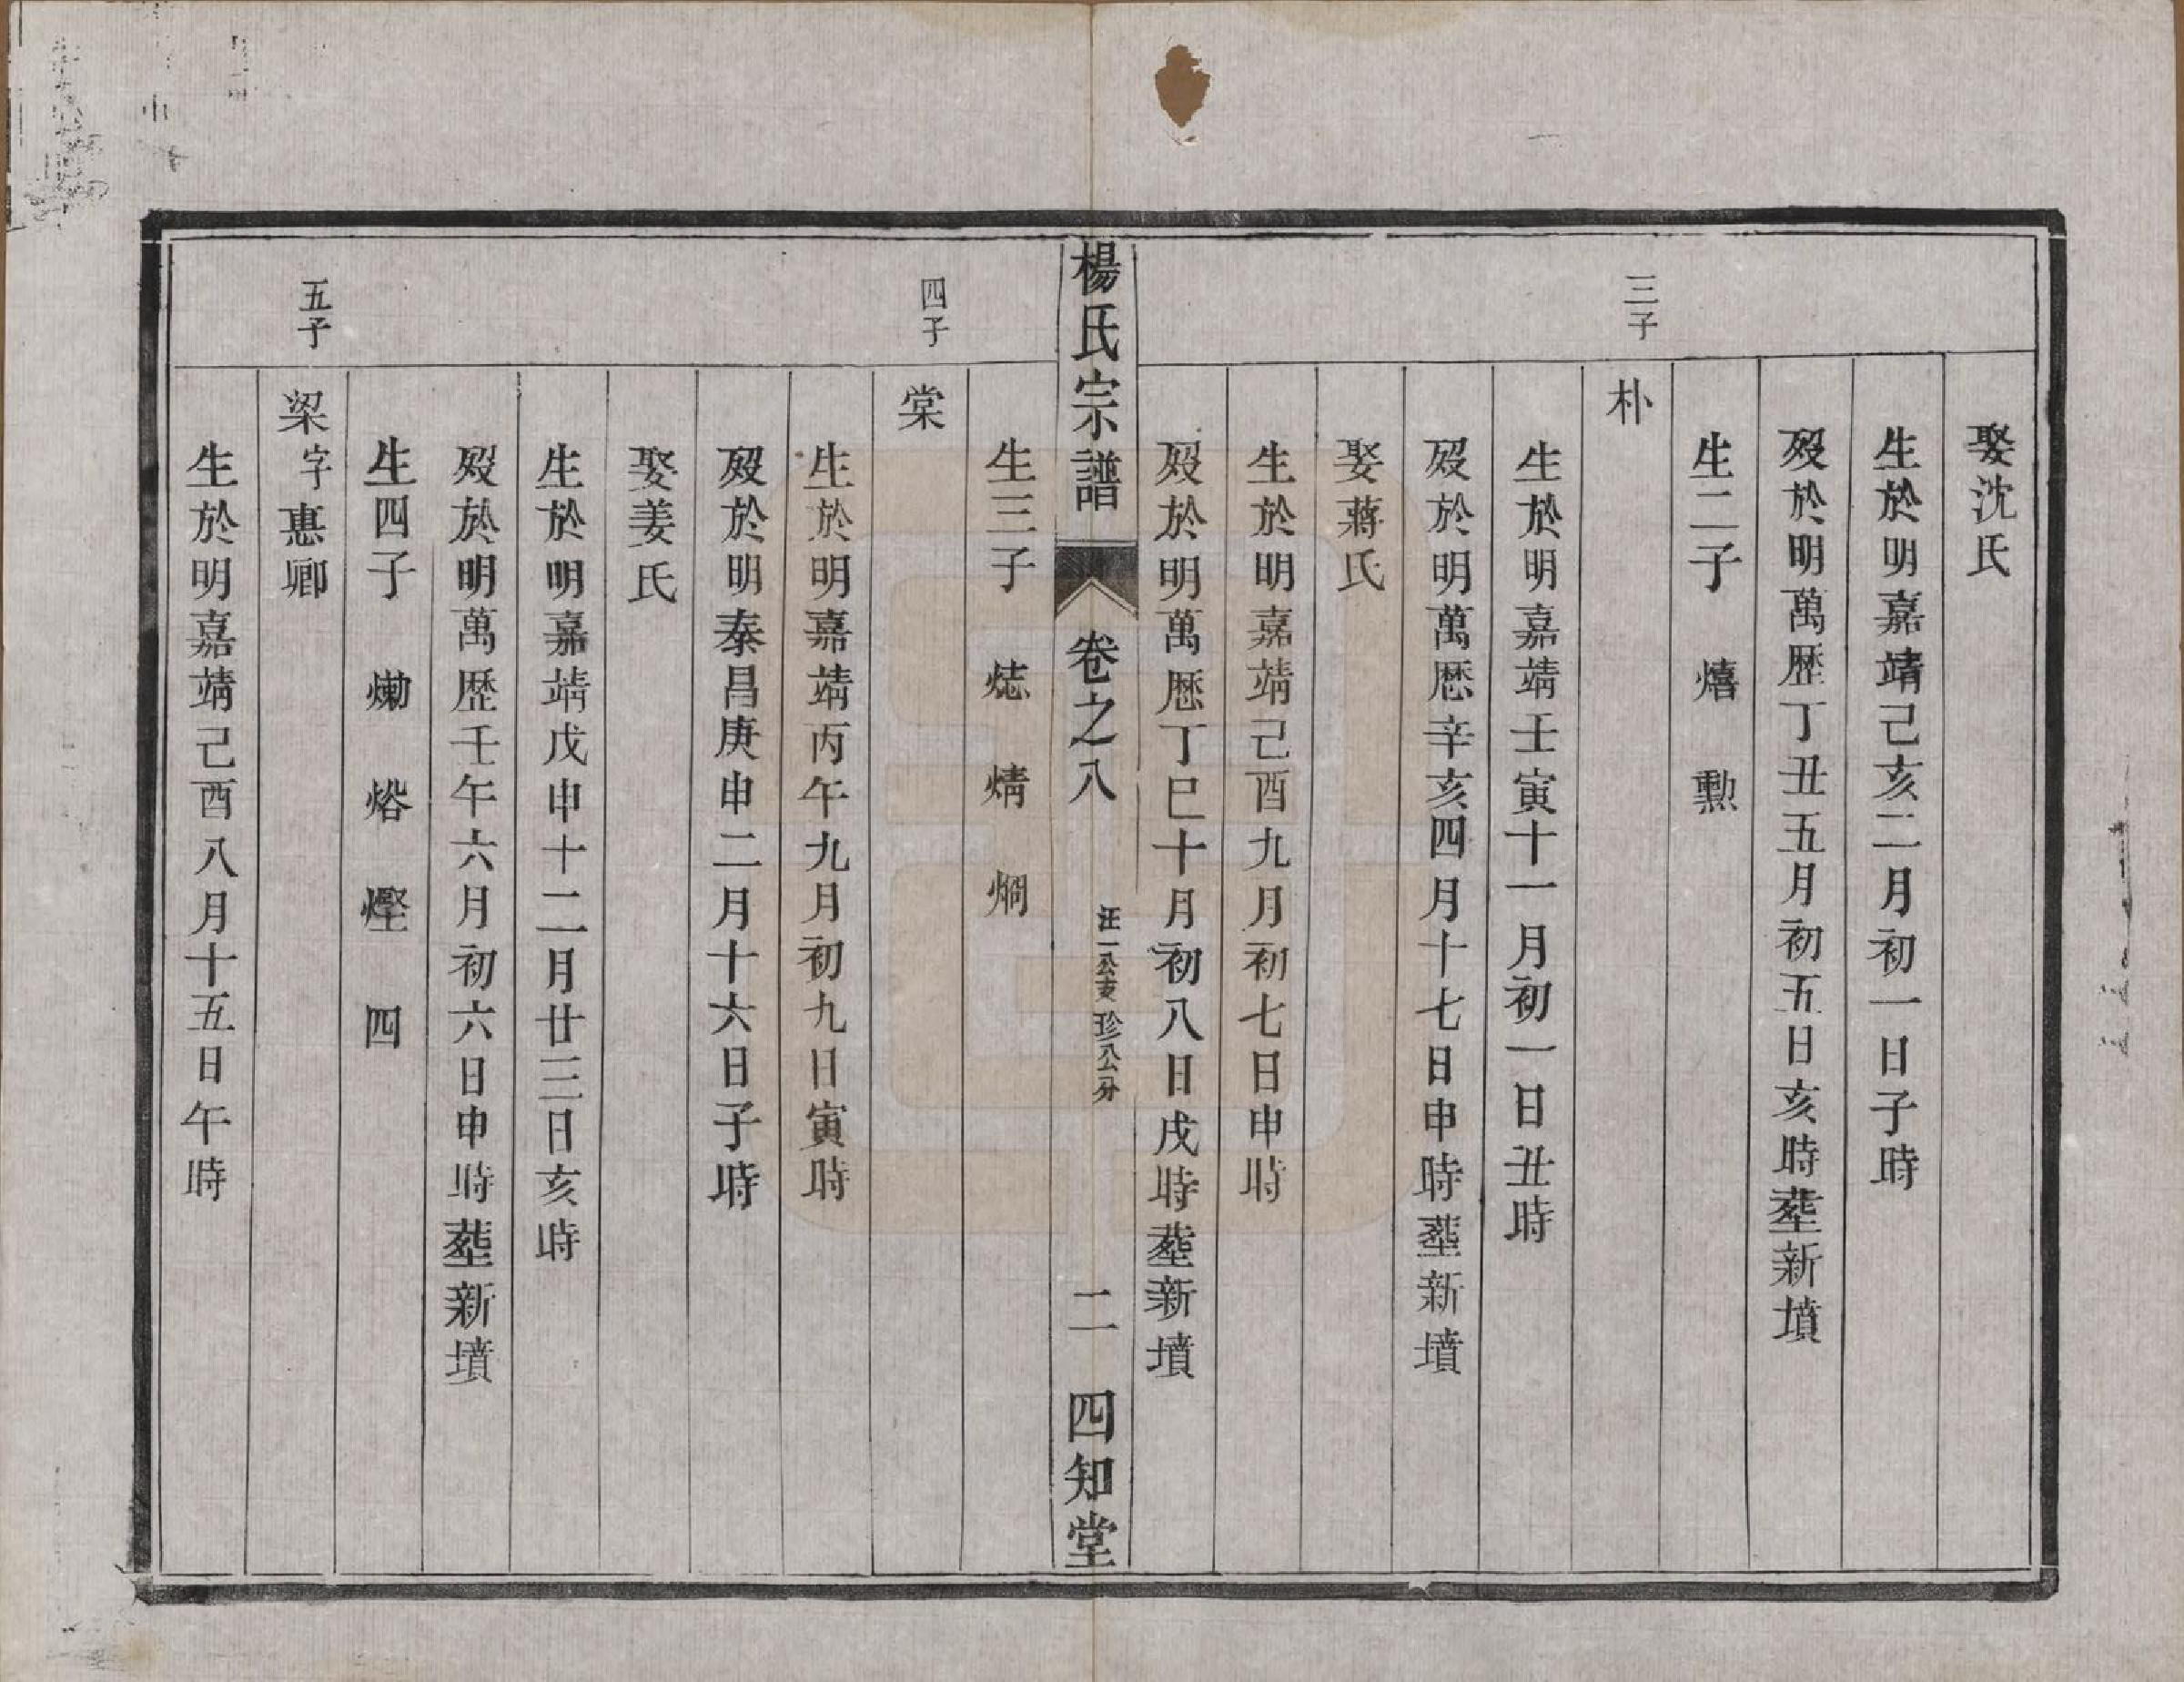 娶沈氏
生於明嘉靖己亥二月初一日子時
歿於明萬歷丁丑五月初五日亥時塟新墳
生二子 熺 勲
三子
朴
生於明嘉靖壬寅十一月初一日丑時
歿於明萬厯辛亥四月十七日申時塟新墳
娶蔣氏
生於明嘉靖己酉九月初七日申時
歿於明萬厯丁巳十月初八日戌時塟新墳
楊氏宗譜 卷之八 汪一公支珍公分 二 四知堂
生三子 焧 焨 㷎
四子
棠
生於明嘉靖丙午九月初九日寅時
歿於明泰昌庚申二月十六日子時
娶姜氏
生於明嘉靖戊申十二月廿三日亥時
歿於明萬歷壬午六月初六日申時塟新墳
生四子 焀 四
五子
梁字惠卿
生於明嘉靖己酉八月十五日午時